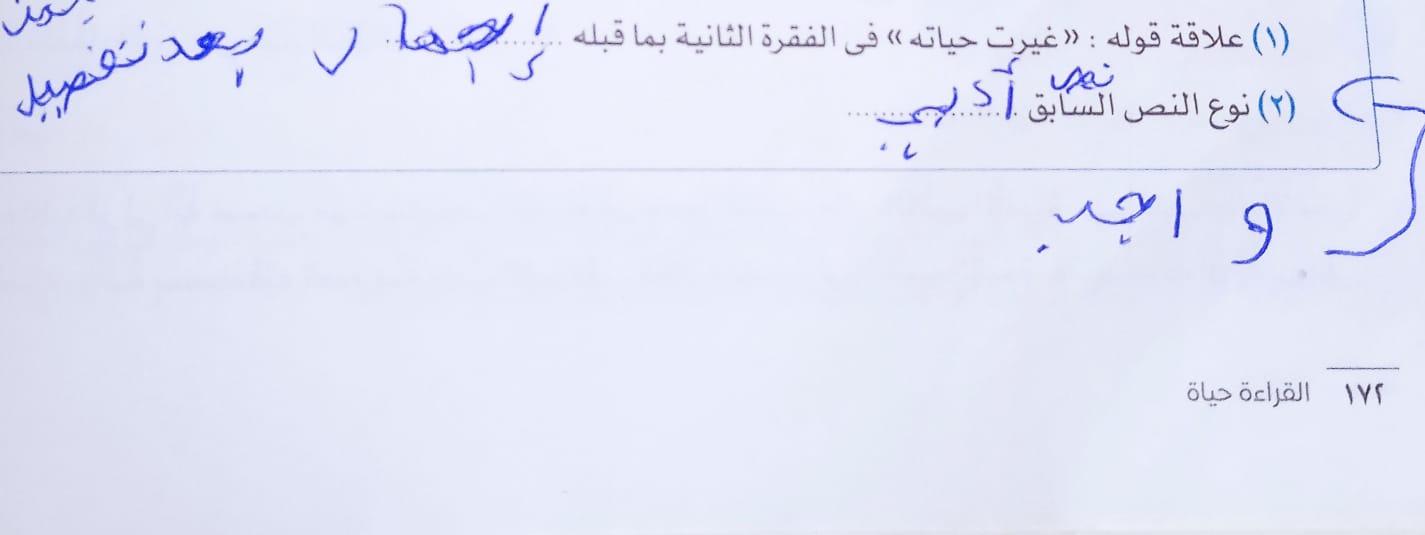 (١) علاقة قوله : «غيرت حياته» فى الفقرة الثانية بما قبله إجمال بعد تفصيل
(٢) نوع النص السابق نص أدبي
واجب
١٧٢ القراءة حياة